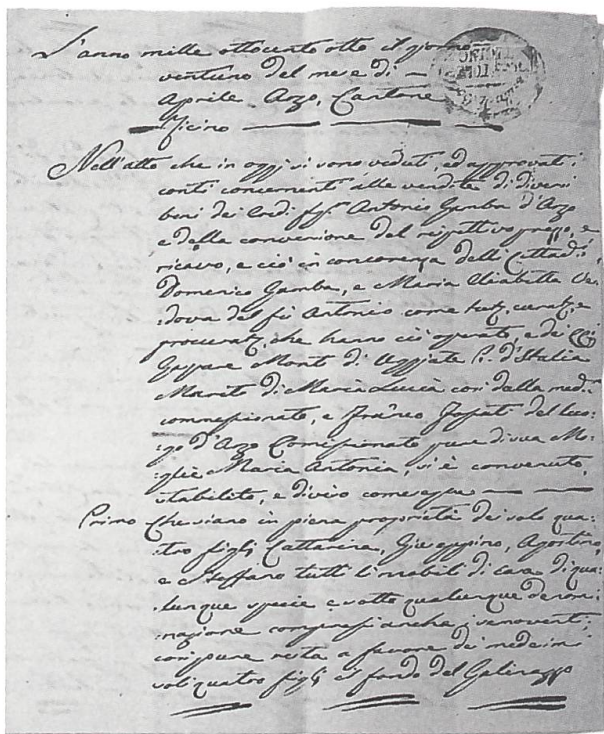 L'anno mille ottocento otto il giorno
ventuno del mese di —
Aprile. Arzo, Cantone
Ticino
Nell'atto che in oggi si sono veduti, ed approvati i
conti concernenti alle vendite di diversi
beni dei Credi fq.m Antonio Gamba d'Arzo
e della conversione del rispettivo prezzo, e
ricavo, e ciò in concorenza delli Cittad.i
Domenico Gamba, e Maria Elisabetta Ve-
dova del fù Antonio come tut.i, curat.i, e
procurat.i, che hanno ciò operato, e de'
Gaspare Monti di Uggiate R. d'Italia
Marito di Maria Lucia così dalla med.a
commissionato, e Fran.co Fossati del luo-
go d'Arzo Comissionato pure di sua Mo-
glie Maria Antonia, si è convenuto,
stabilito, e diviso come segue
Primo Che siano in piena proprietà dei soli qua-
tro figli Cattarina, Giuseppino, Agostino,
e Steffano tutti li mobili di casa di qua-
lunque specie e sotto qualunque denomi-
nazione compresi anche i
così pure resta a favore de' medemi
soli quatro figli il fondo del